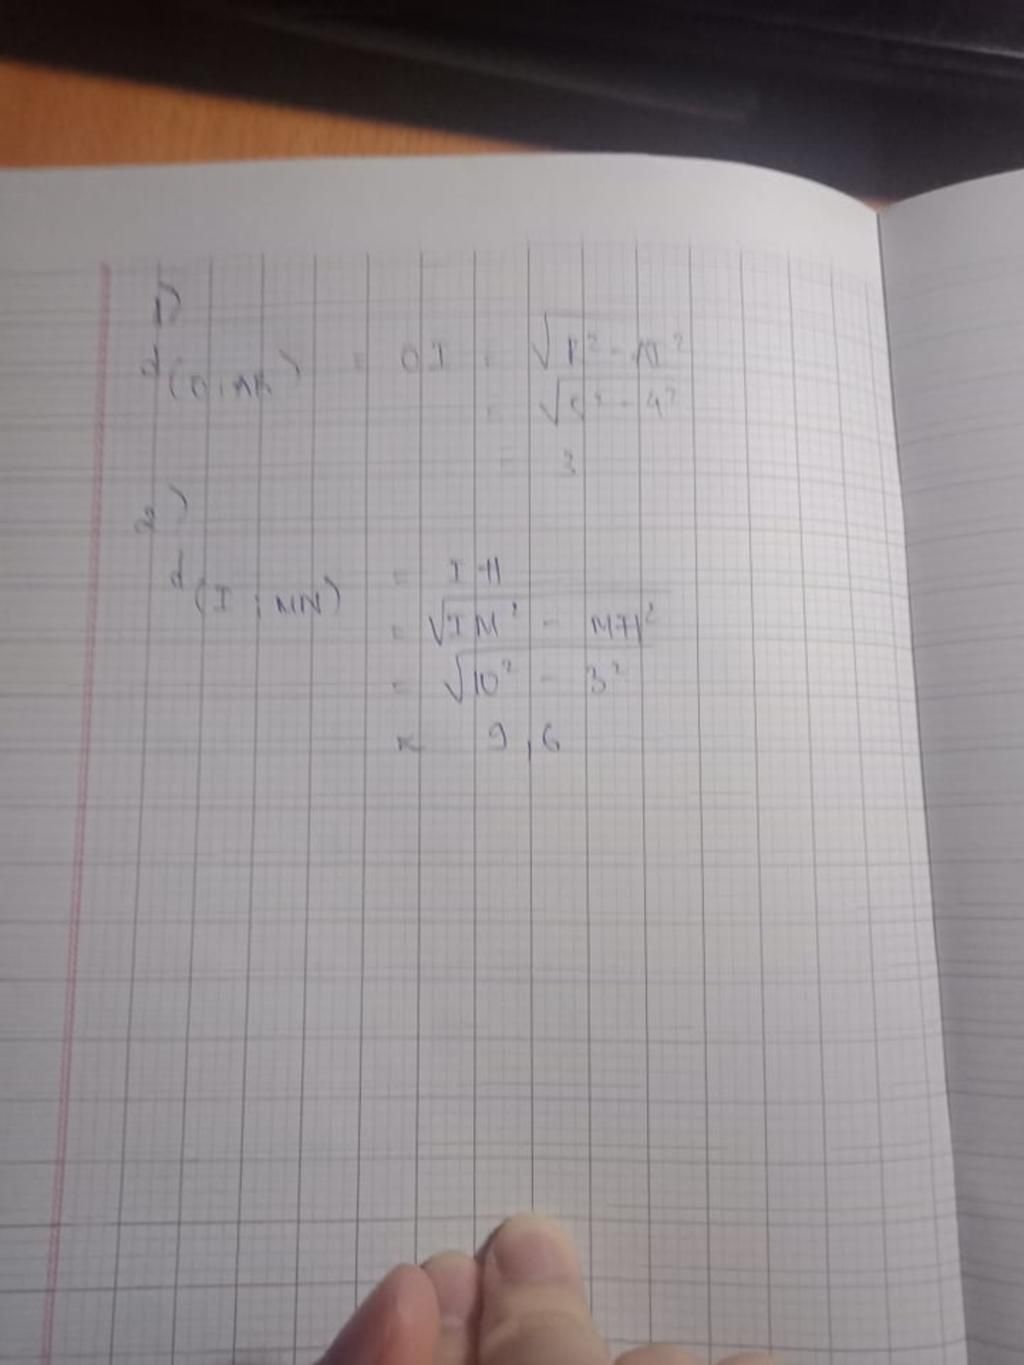 1)
d(O;AB) = OI = √r² - AI²
= √5² - 4²
= 3
2)
d(I ; MN) = IH
= √IM² - MH²
= √10² - 3²
≈ 9,6